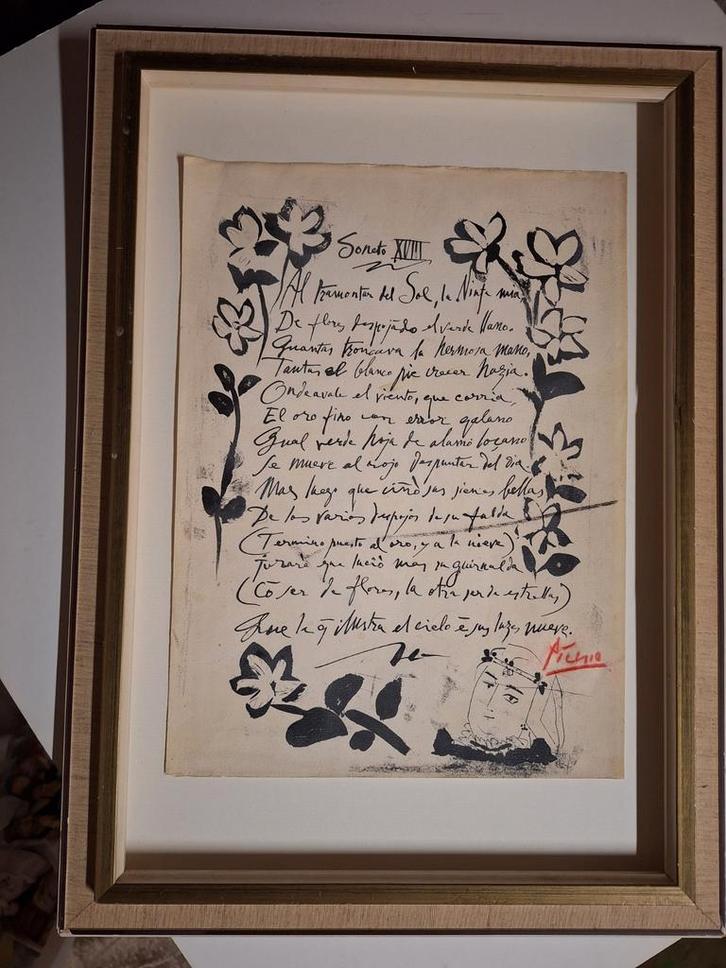 Soneto XVIII
Al tramontar del Sol, la Ninfa mia
De flores despojado el verde llano.
Quantas troncava la hermosa mano,
Tantas el blanco pie crecer hazia.
Ondeavale el viento, que corria,
El oro fino con error galano
Qual verde hoja de alamo loçano
Se mueve al rojo despuntar del dia
Mas luego que ciñó sus sienes bellas
De los varios despojos de su falda
(Termino puesto al oro, y a la nieve)
Juraré que lució mas su guirnalda
(Cō ser de flores, la otra ser de estrellas)
Que la q̄ illustra el cielo ē sus luzes nueve.
Picasso